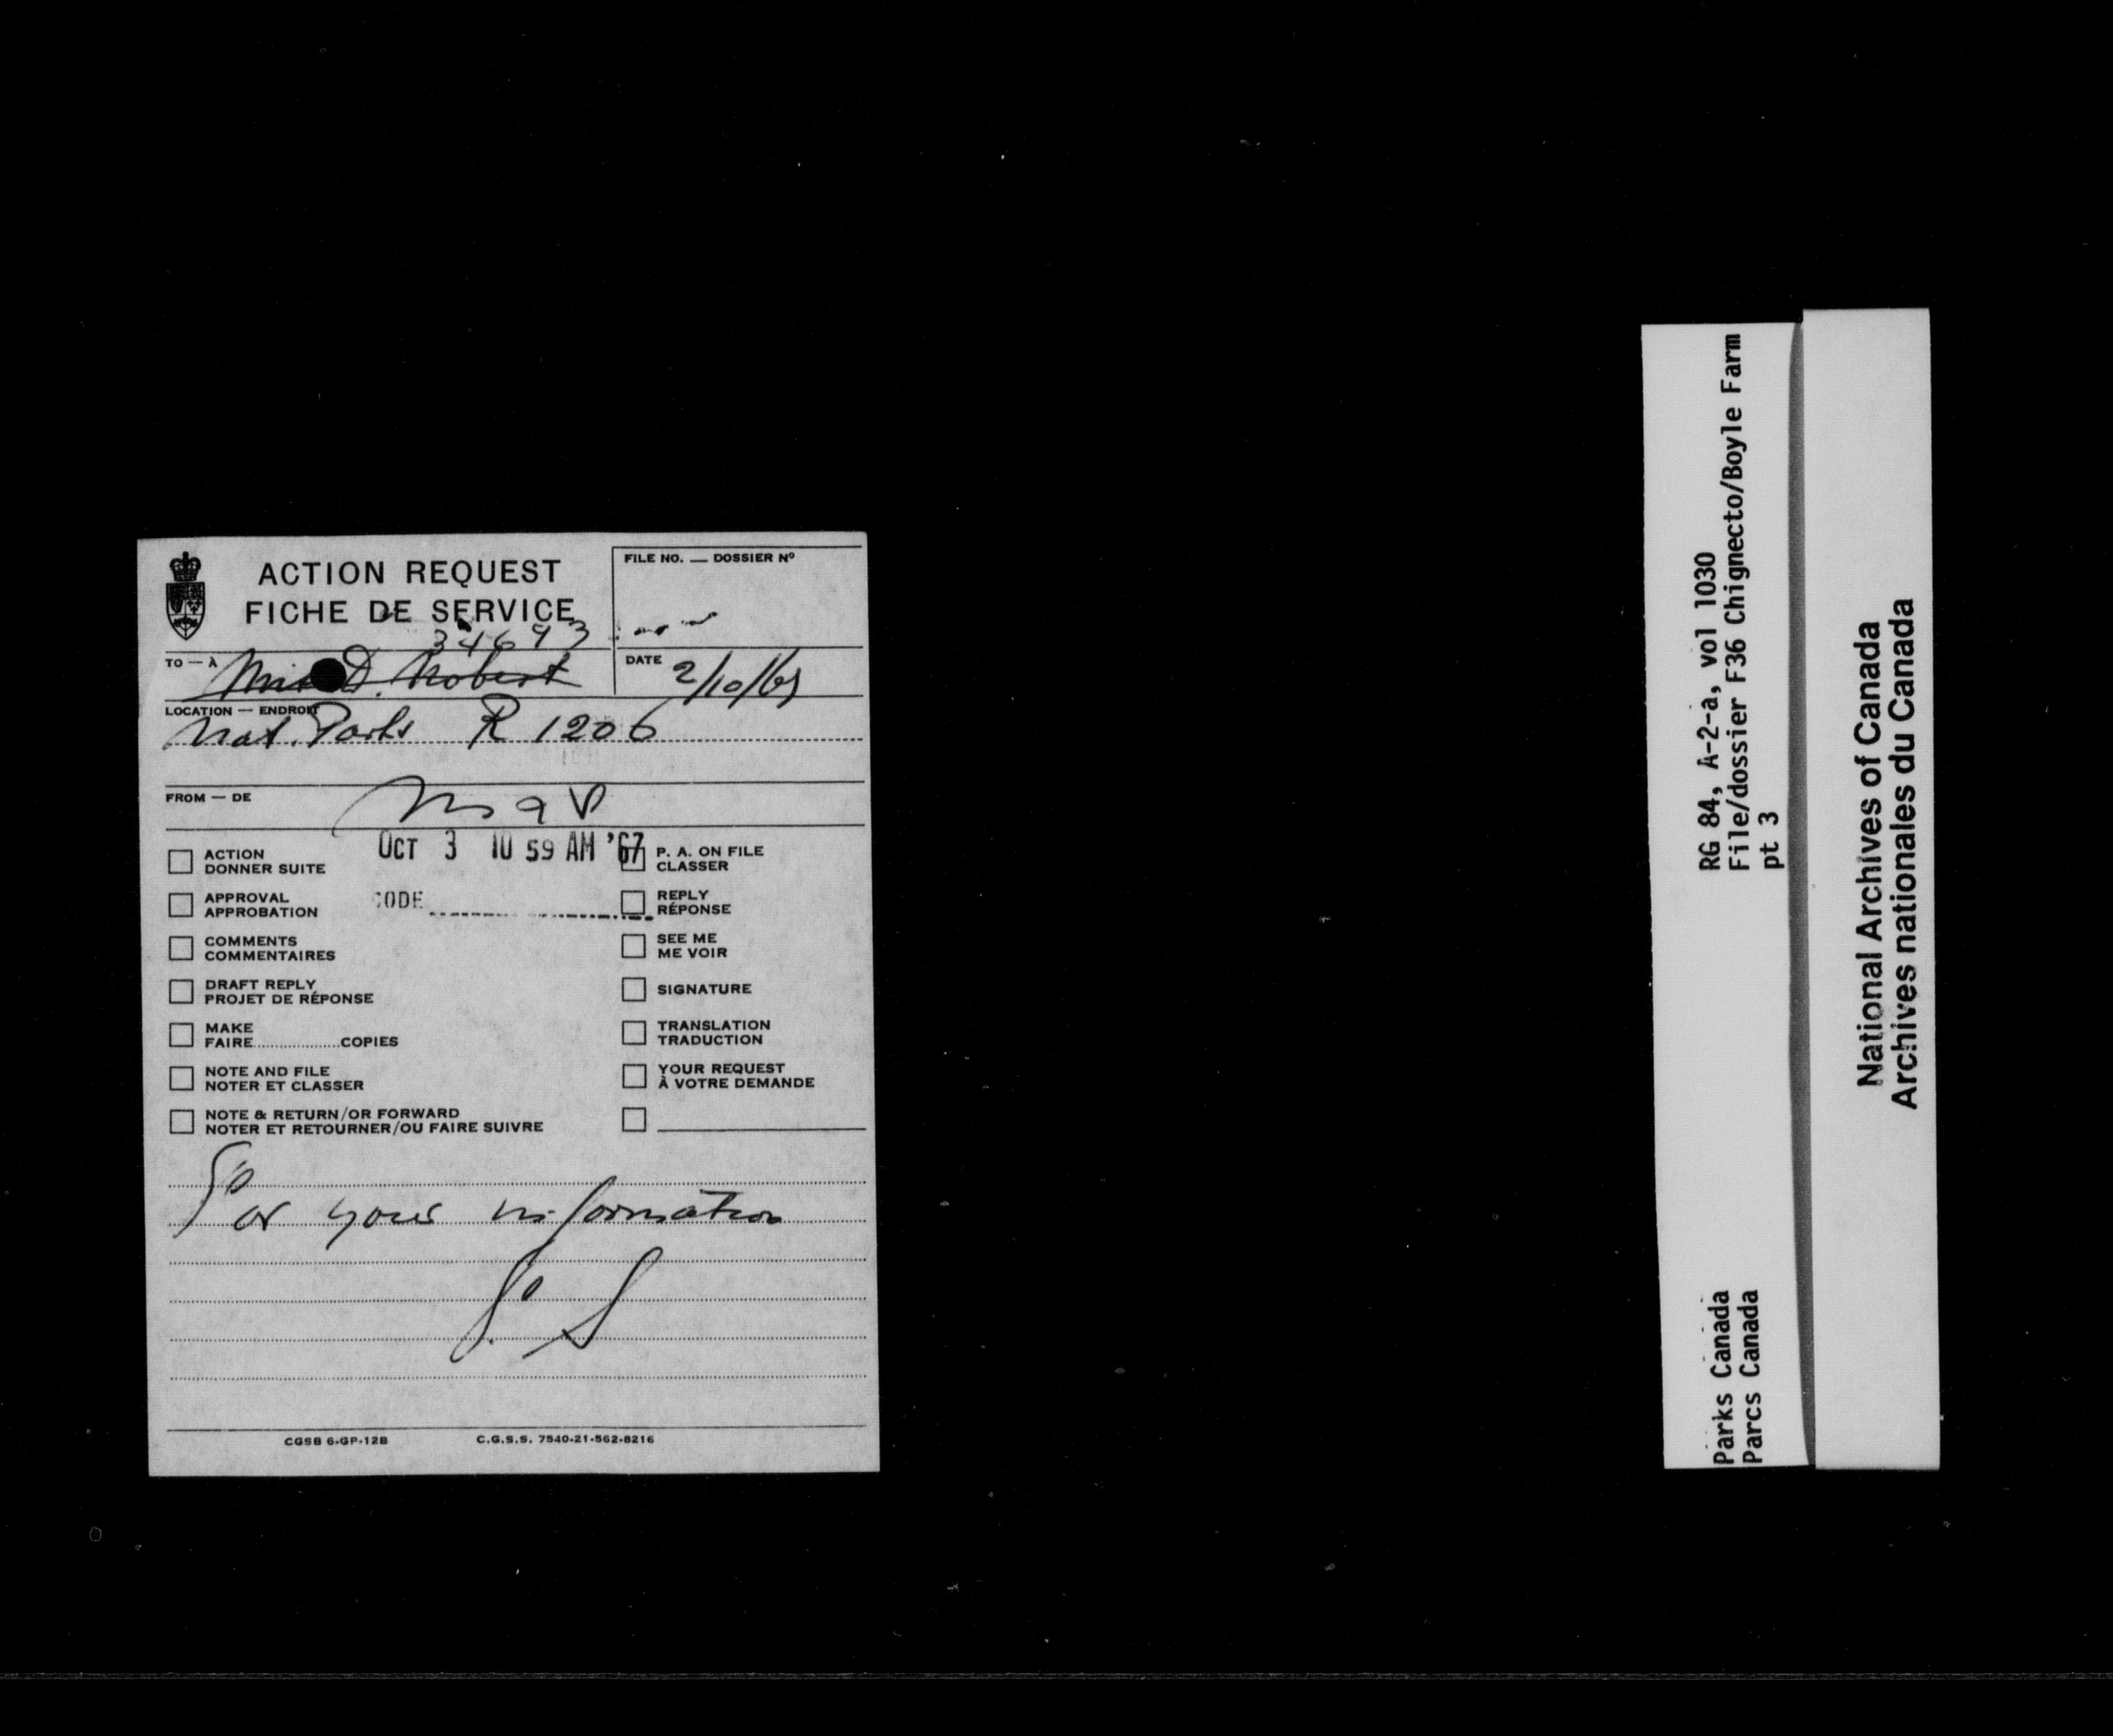 ACTION REQUEST
FICHE DE SERVICE
FILE NO. — DOSSIER Nº
34693
TO — À
D. Robert
DATE 2/10/67
LOCATION — ENDROIT
Nat. Parks R 1206
FROM — DE
OCT 3 10 59 AM '67
ACTION
DONNER SUITE
P. A. ON FILE
CLASSER
APPROVAL
APPROBATION
CODE
REPLY
RÉPONSE
COMMENTS
COMMENTAIRES
SEE ME
ME VOIR
DRAFT REPLY
PROJET DE RÉPONSE
SIGNATURE
MAKE
FAIRE..................COPIES
TRANSLATION
TRADUCTION
NOTE AND FILE
NOTER ET CLASSER
YOUR REQUEST
À VOTRE DEMANDE
NOTE & RETURN/OR FORWARD
NOTER ET RETOURNER/OU FAIRE SUIVRE
For your information
CGSB 6-GP-12B C.G.S.S. 7540-21-562-8216
RG 84, A-2-a, vol 1030
File/dossier F36 Chignecto/Boyle Farm
pt 3
Parks Canada
Parcs Canada
National Archives of Canada
Archives nationales du Canada